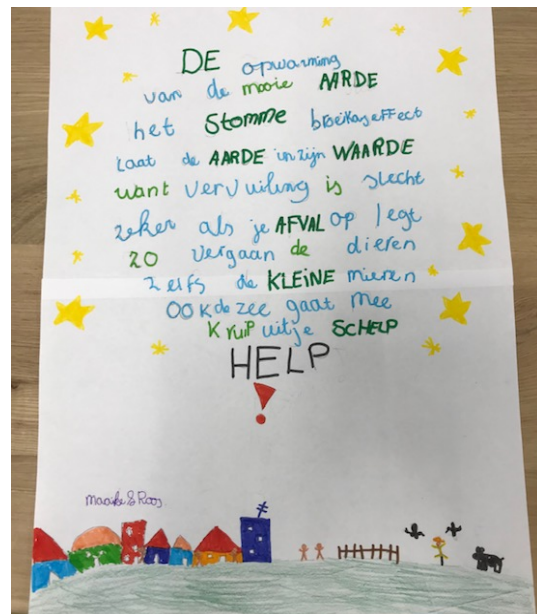 DE opwarming
van de mooie AARDE
het Stomme broeikaseffect
Laat de AARDE in zijn WAARDE
want vervuiling is slecht
zeker als je AFVAL op legt
zo vergaan de dieren
zelfs de KLEINE mieren
OOK de zee gaat mee
Kruip uit je SCHELP
HELP
!
Maaike & Roos